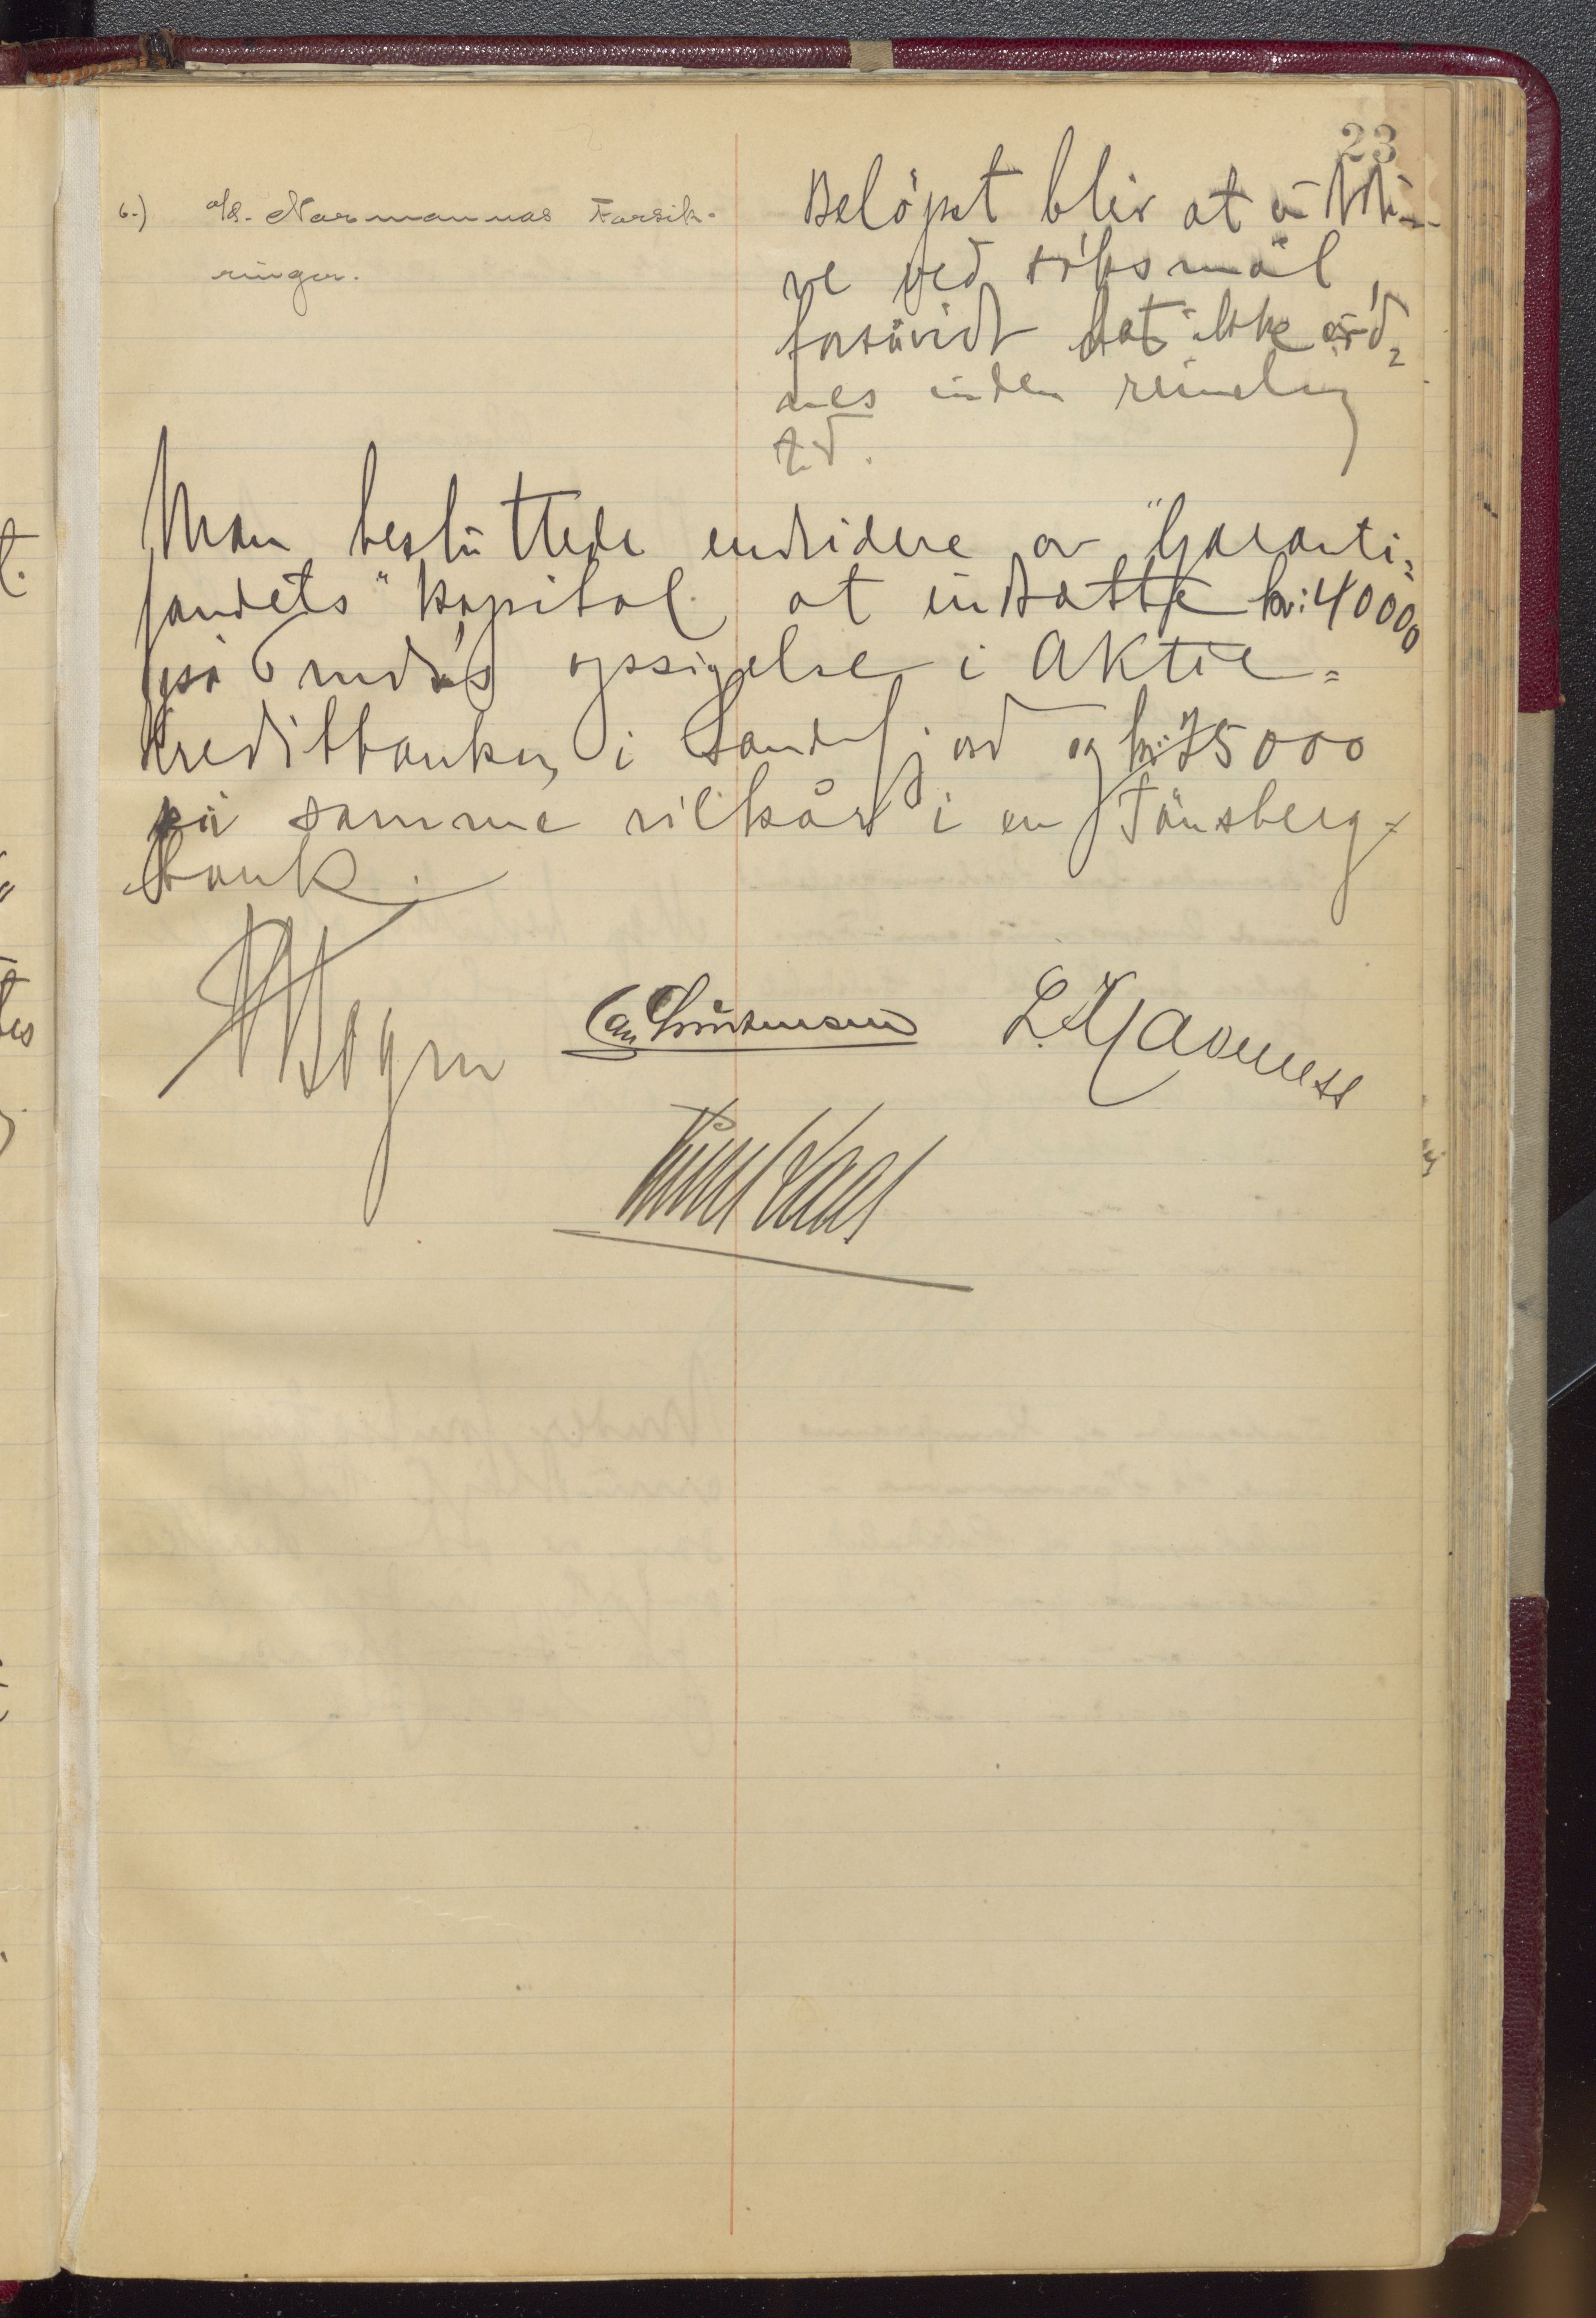 23
6.) A/S. Normannas Forsik-
ringer.
Beløpet blir at inddri-
ve ved søksmål,
forsåvidt det ikke ord=
nes inden rimelig
tid.
Man besluttede endvidere av "Garanti=
fondets" kapital at indsætte kr: 40000
på 6 mdrs opsigelse i Aktie=
Kreditbanken i Sandefjord og kr: 75000
på samme vilkår i en Tønsberg=
bank.
Chr Christensen